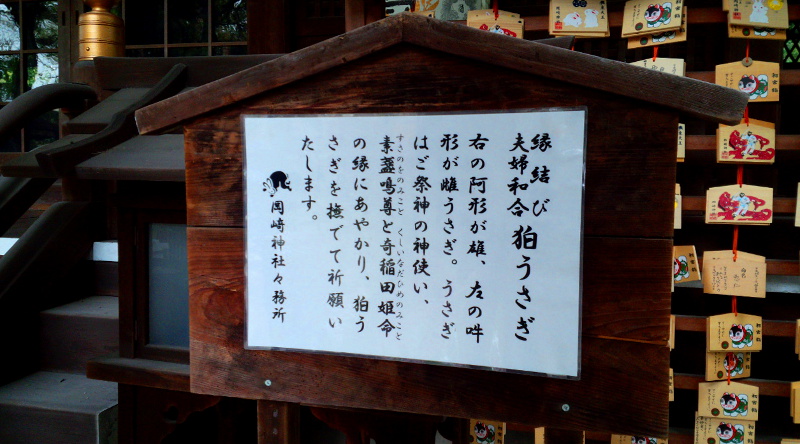 縁結び
夫婦和合
狛うさぎ
右の阿形が雄、左の吽
形が雌うさぎ。うさぎ
はご祭神の神使い、
素盞鳴尊と奇稲田姫命
すさのをのみこと くしいなだひめのみこと
の縁にあやかり、狛う
さぎを撫でて祈願い
たします。
岡崎神社々務所